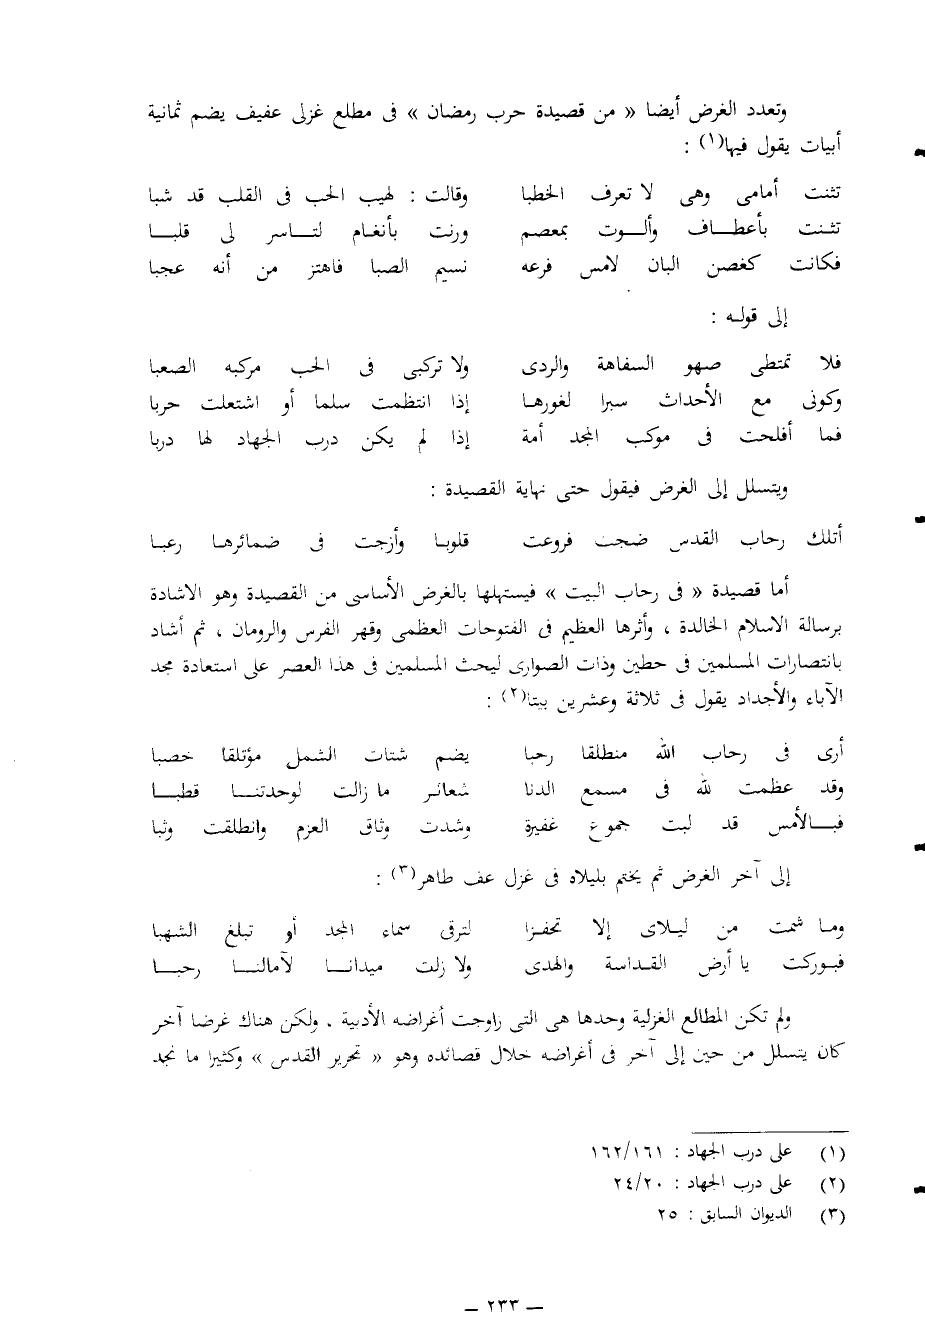 وتعدد الغرض أيضا « من قصيدة حرب رمضان » فى مطلع غزلى عفيف يضم ثمانية
أبيات يقول فيها(١) :
تثنت أمامى وهى لا تعرف الخطبا وقالت : لهيب الحب فى القلب قد شبا
تثـنت بأعطـــاف وألـــوت بمعصم ورنت بأنغـام لتـــاسر لى قلبـــا
فكانت كغصن البان لامس فرعه نسيم الصبا فاهتز من أنه عجبا
إلى قولـه :
فلا تمتطى صهو السفاهة والردى ولا تركبى فى الحب مركبه الصعبا
وكونى مع الأحداث سبرا لغورهـا إذا انتظمت سلما أو اشتعلت حربا
فما أفلحت فى موكب المجد أمة إذا لم يكن درب الجهاد لها دربا
ويتسلل إلى الغرض فيقول حتى نهاية القصيدة :
أتلك رحاب القدس ضجت فروعت قلوبـا وأزجت فى ضمائرهـا رعبـا
أما قصيدة « فى رحاب البيت » فيستهلها بالغرض الأساسى من القصيدة وهو الاشادة
برسالة الاسلام الخالدة ، وأثرها العظيم فى الفتوحات العظمى وقهر الفرس والرومان ، ثم أشاد
بانتصارات المسلمين فى حطين وذات الصوارى ليحث المسلمين فى هذا العصر على استعادة مجد
الآباء والأجداد يقول فى ثلاثة وعشرين بيتا(٢) :
أرى فى رحاب الله منطلقا رحبا يضم شتات الشمل مؤتلقا خصبا
وقد عظمت لله فى مسمع الدنا شعائـر ما زالت لوحدتنـــا قطبـــا
فبـــالأمس قد لبت جموع غفيرة وشدت وثاق العزم وانطلقت وثبا
إلى آخر الغرض ثم يختم بليلاه فى غزل عف طاهر(٣) :
ومـا شمت من ليـلاى إلا تحفـزا لترقى سماء المجد أو تبلغ الشهبا
فبـوركت يا أرض القـداسة والهدى ولا زلت ميدانـــا لآمالنـــا رحبـــا
ولم تكن المطالع الغزلية وحدها هى التى زاوجت أغراضه الأدبية . ولكن هناك غرضا آخر
كان يتسلل من حين إلى آخر فى أغراضه خلال قصائده وهو « تحرير القدس » وكثيرا ما نجد
(١) على درب الجهاد : ١٦٢/١٦١
(٢) على درب الجهاد : ٢٤/٢٠
(٣) الديوان السابق : ٢٥
— ٢٣٣ —